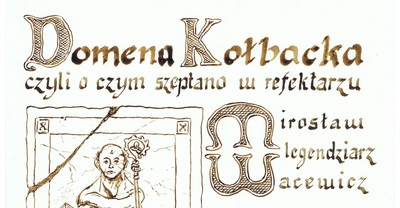 Domena Kołbacka
czyli o czym szeptano w refektarzu
Mirosław
legendziarz
Wacewicz